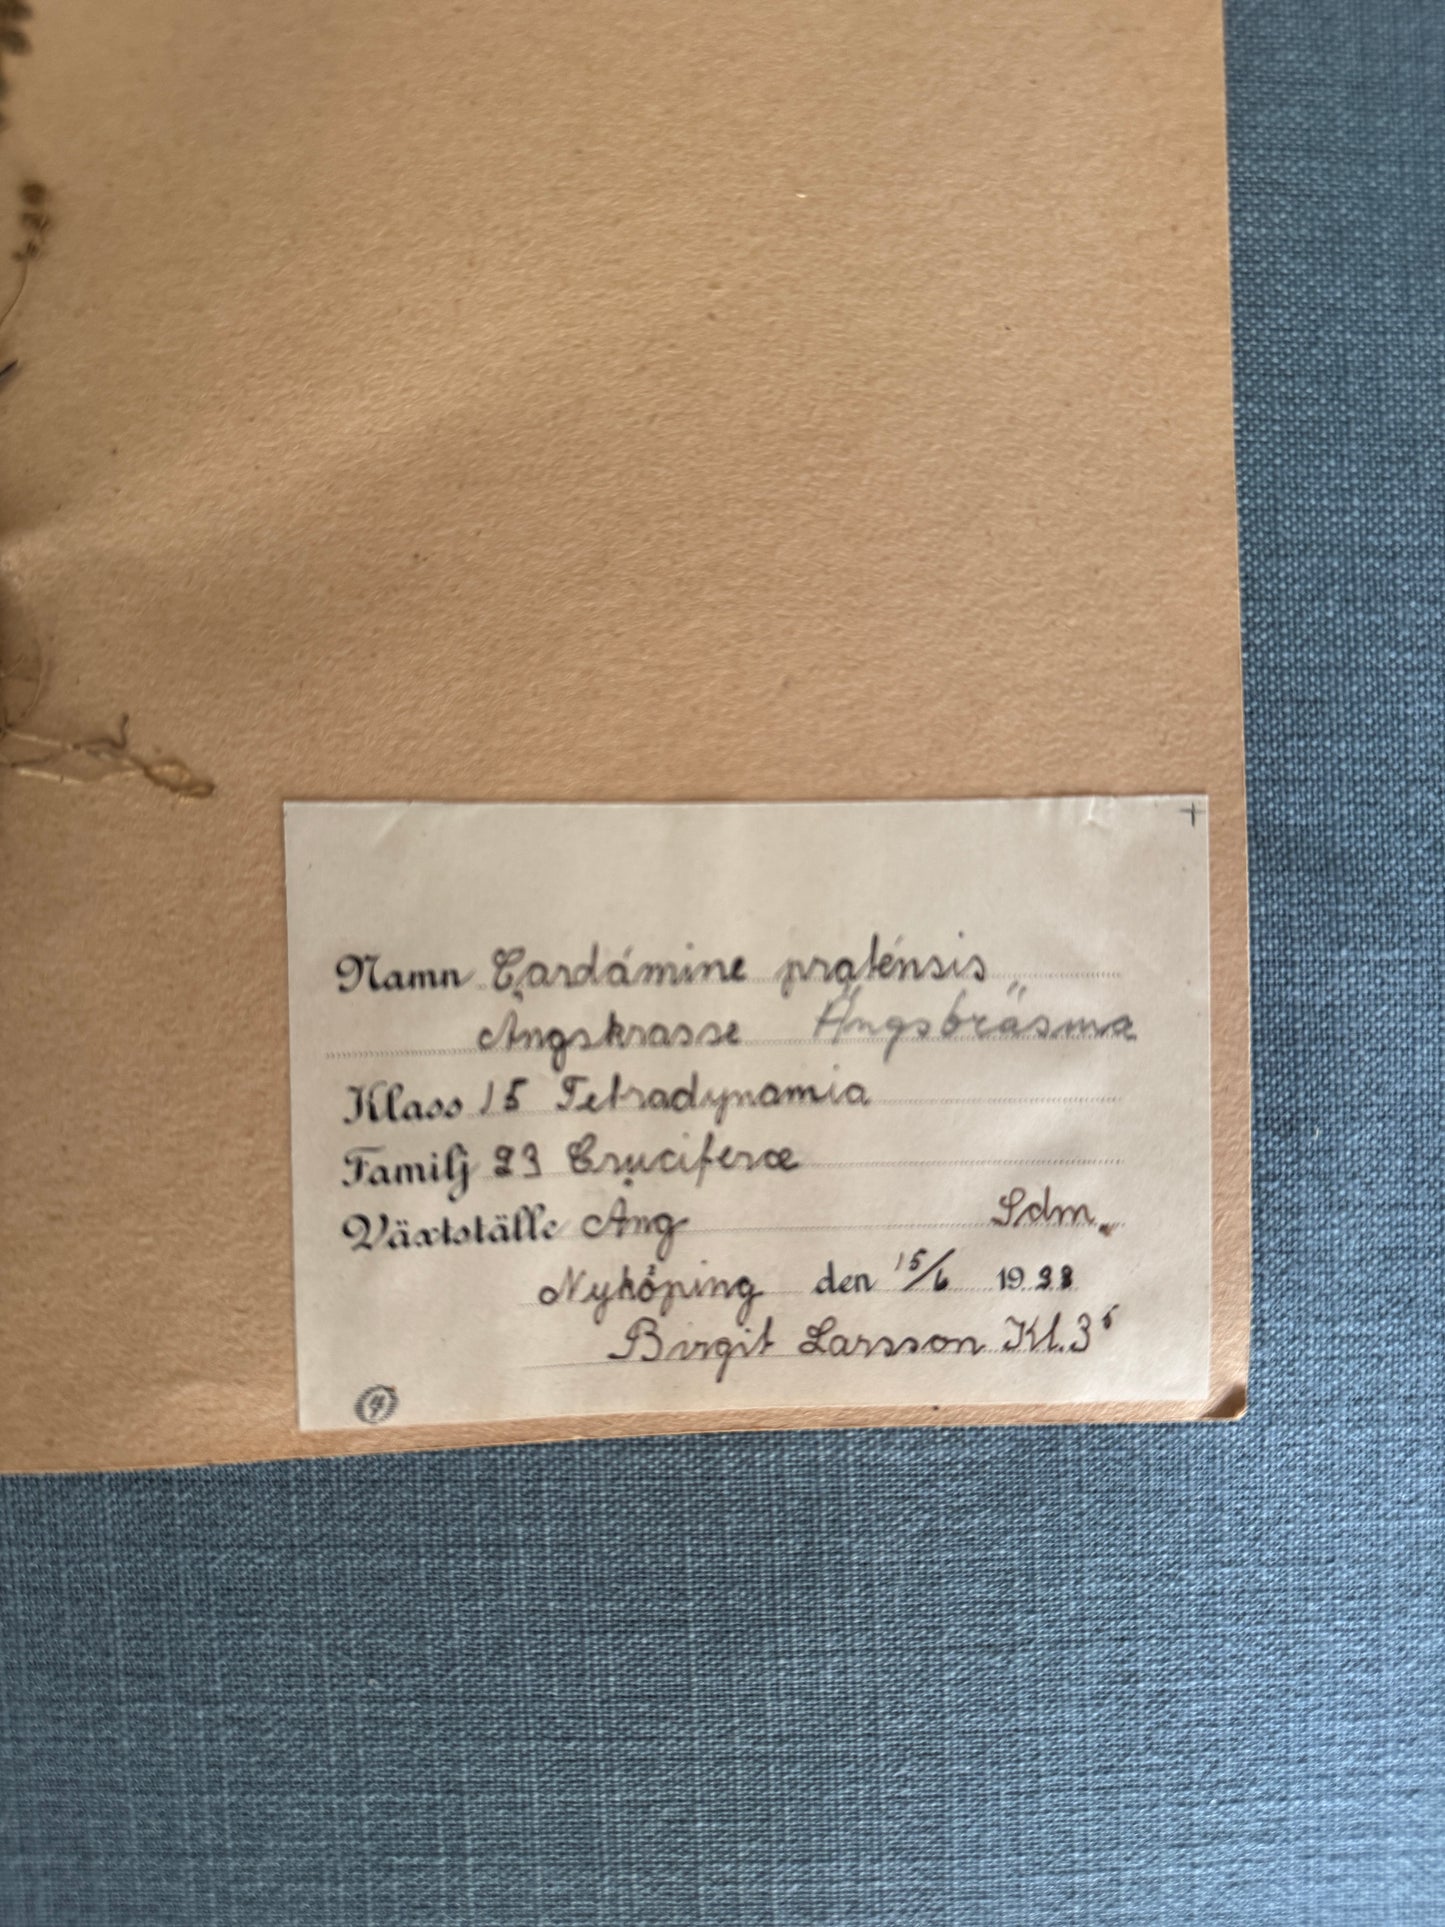 Namn Cardámine praténsis
Ängskrasse Ängsbräsma
Klass 15 Tetradynamia
Familj 23 Cruciferæ
Växtställe Äng Sdm.
Nyköping den 15/6 1938
Birgit Larsson Kl. 3⁵